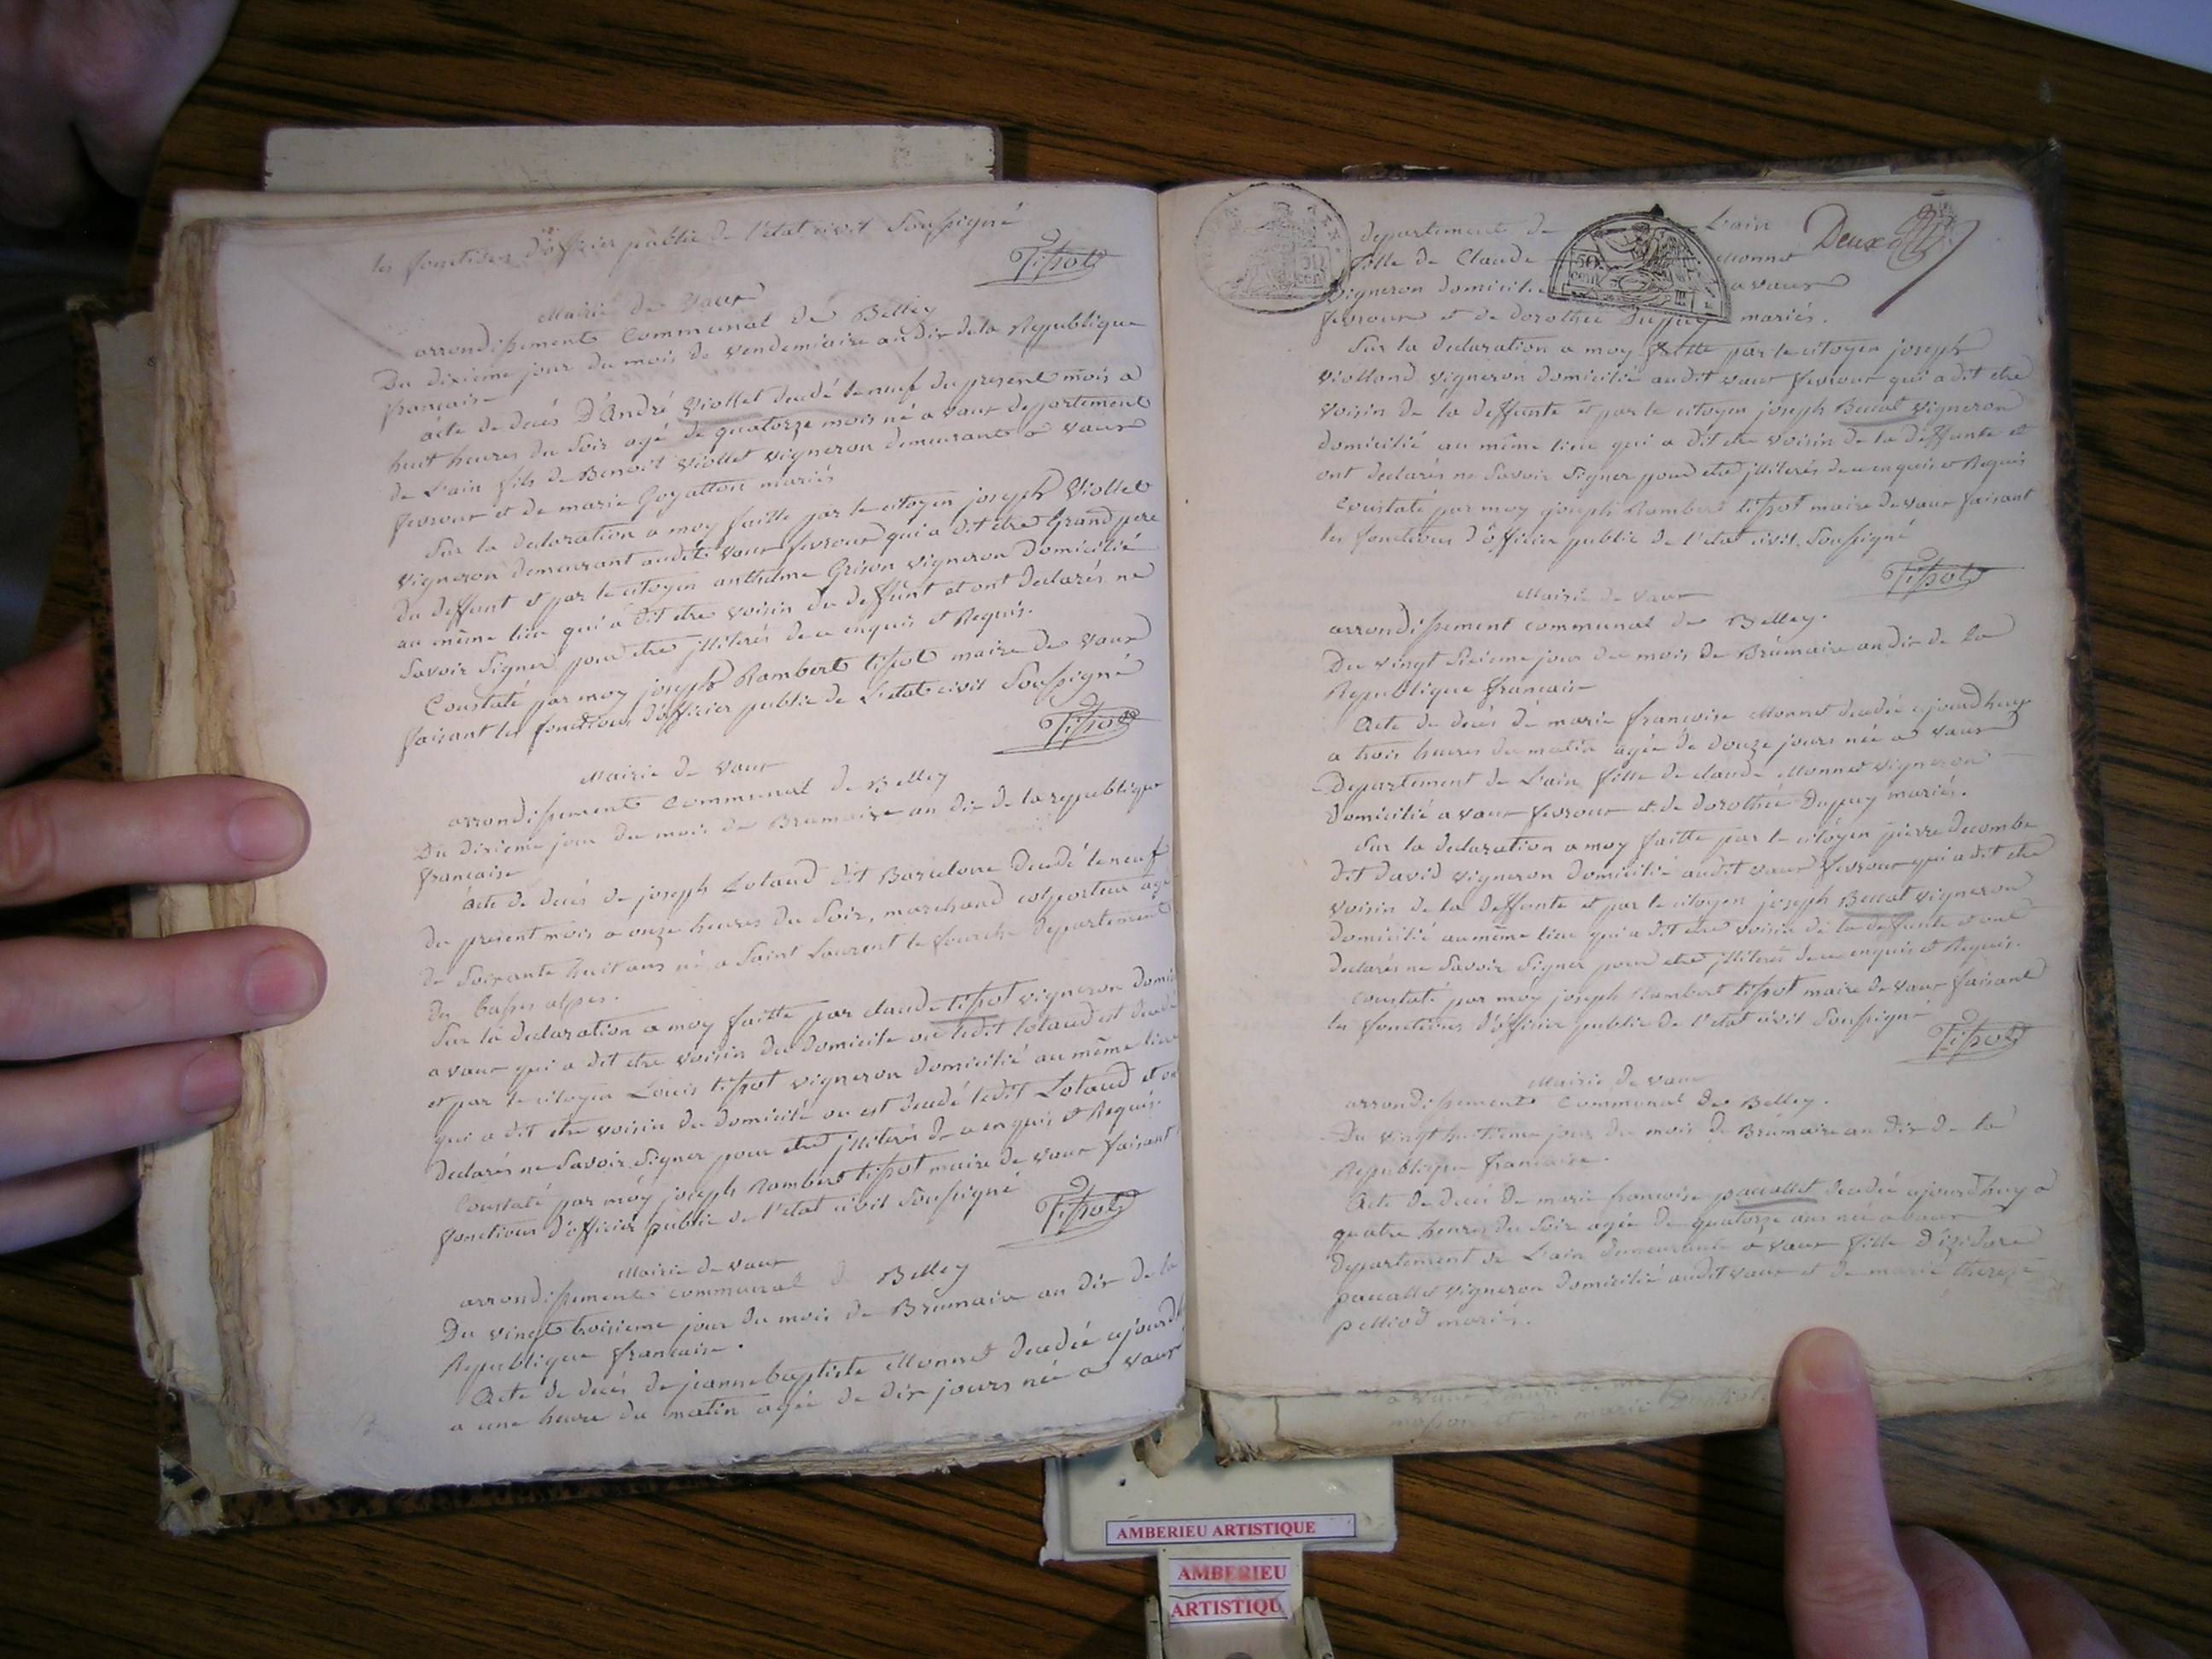 les fonctions d'officier public de l'etat civil Soussigné
Tissot
Mairie de Vaux
arrondissement Communal de Belley
Du dixieme jour du mois de vendemiaire an dix de la Republique
francaise
acte de decés D'André Viollet decedé le neuf du present mois a
huit heures du Soir agé de quatorze mois né a vaux departement
de L'ain fils de Benoit Viollet vigneron demeurant a vaux
fevroux et de marie Goyatton mariés
Sur la declaration a moy faitte par le citoyen joseph Viollet
vigneron demeurant audit vaux fevroux qui a dit etre Grand pere
du deffunt et par le citoyen anthelme Grison vigneron Domicilié
au même lieu qui a dit etre voisin du deffunt et ont declarés ne
Savoir Signer pour etre jlliterés de ce enquis et Requis.
Constaté par moy joseph Rambert tissot maire de vaux
faisant les fonctions d'officier public de L'etat civil Soussigné
Tissot
Mairie de vaux
arrondissement Communal de Belley
Du dixieme jour du mois de Brumaire an dix de la republique
francaise
acte de decés de joseph Lotaud dit Barcelone decedé le neuf
du present mois a onze heures du Soir, marchand colporteur agé
de Soixante huit ans né a Saint Laurent le departement
des basses alpes.
Sur la declaration a moy faitte par claude tissot vigneron domici
a vaux qui a dit etre voisin du domicile ou ledit lotaud est decedé
et par le citoyen Louis tissot vigneron domicilié au même lieu
qui a dit etre voisin du domicilé ou est decedé ledit Lotaud et ont
declarés ne Savoir Signer pour etre jlliterés de ce enquis et Requis.
Constaté par moy joseph Rambert tissot maire de vaux faisant
fonctions d'officier public de l'etat civil Soussigné
Tissot
Mairie de vaux
arrondissement communal de Belley
Du vingt troisieme jour du mois de Brumaire an dix de la
Republique francaise.
Acte de decés de jeanne baptiste Monnet decedée ajourdh
a une heure du matin agée de dix jours née a vaux
departement de L'ain Deux
fille de Claude Monnet
vigneron domicilié a vaux
fevroux et de dorothée Duppuy mariés.
Sur la declaration a moy faitte par le citoyen joseph
viollond vigneron domicilié audit vaux fevroux qui a dit etre
voisin de la deffunte et par le citoyen joseph Beccat vigneron
domicilié au même lieu qui a dit etre voisin de la deffunte et
ont declarés ne Savoir Signer pour etre jlliterés de ce enquis et Requis
Constaté par moy joseph Rambert tissot maire de vaux faisant
les fonctions d'officier public de l'etat civil Soussigné
Tissot
Mairie de vaux
arrondissement communal de Belley.
Du vingt Sixieme jour du mois de Brumaire an dix de la
Republique francaise
Acte de decés de marie francoise Monnet decedée ajourdhuy
a trois heures du matin agée de douze jours née a vaux
Departement de L'ain fille de claude Monnet vigneron
domicilié a vaux fevroux et de dorothée Duppuy mariés.
Sur la declaration a moy faitte par le citoyen pierre decombe
dit david vigneron domicilié audit vaux fevroux qui a dit etre
voisin de la deffunte et par le citoyen joseph Beccat vigneron
domicilié au même lieu qui a dit etre voisin de la deffunte et ont
declarés ne Savoir Signer pour etre jlliterés de ce enquis et Requis.
Constaté par moy joseph Rambert tissot maire de vaux faisant
les fonctions d'officier public de l'etat civil Soussigné
Tissot
Mairie de vaux
arrondissement Communal de Belley.
Du vingt huitieme jour du mois de Brumaire an dix de la
Republique francaise.
Acte de decés de marie francoise paccallet decedée ajourdhuy a
quatre heures du Soir agée de quatorze ans née a vaux
departement de L'ain demeurante a vaux fille D'izidore
paccallet vigneron domicilié audit vaux et de marie therese
pelliod mariés.
AMBERIEU ARTISTIQUE
AMBERIEU
ARTISTIQU